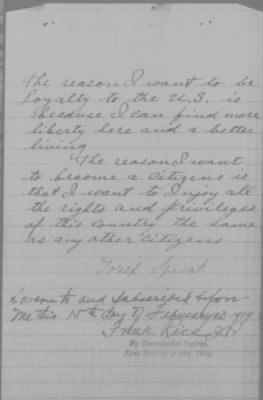 The reason I want to be
Loyalty to the U.S. is
because I can find more
liberty here and a better
living
The reason I want
to become a citizens is
that I want to Injoy all
the rights and privileges
of this country the same
as any other citizens
Jozef
Sworn to and Subscribed before
me this 15th day of February 1919
Frank Rice
My Commission Expires
First Monday of Jan. 1920.